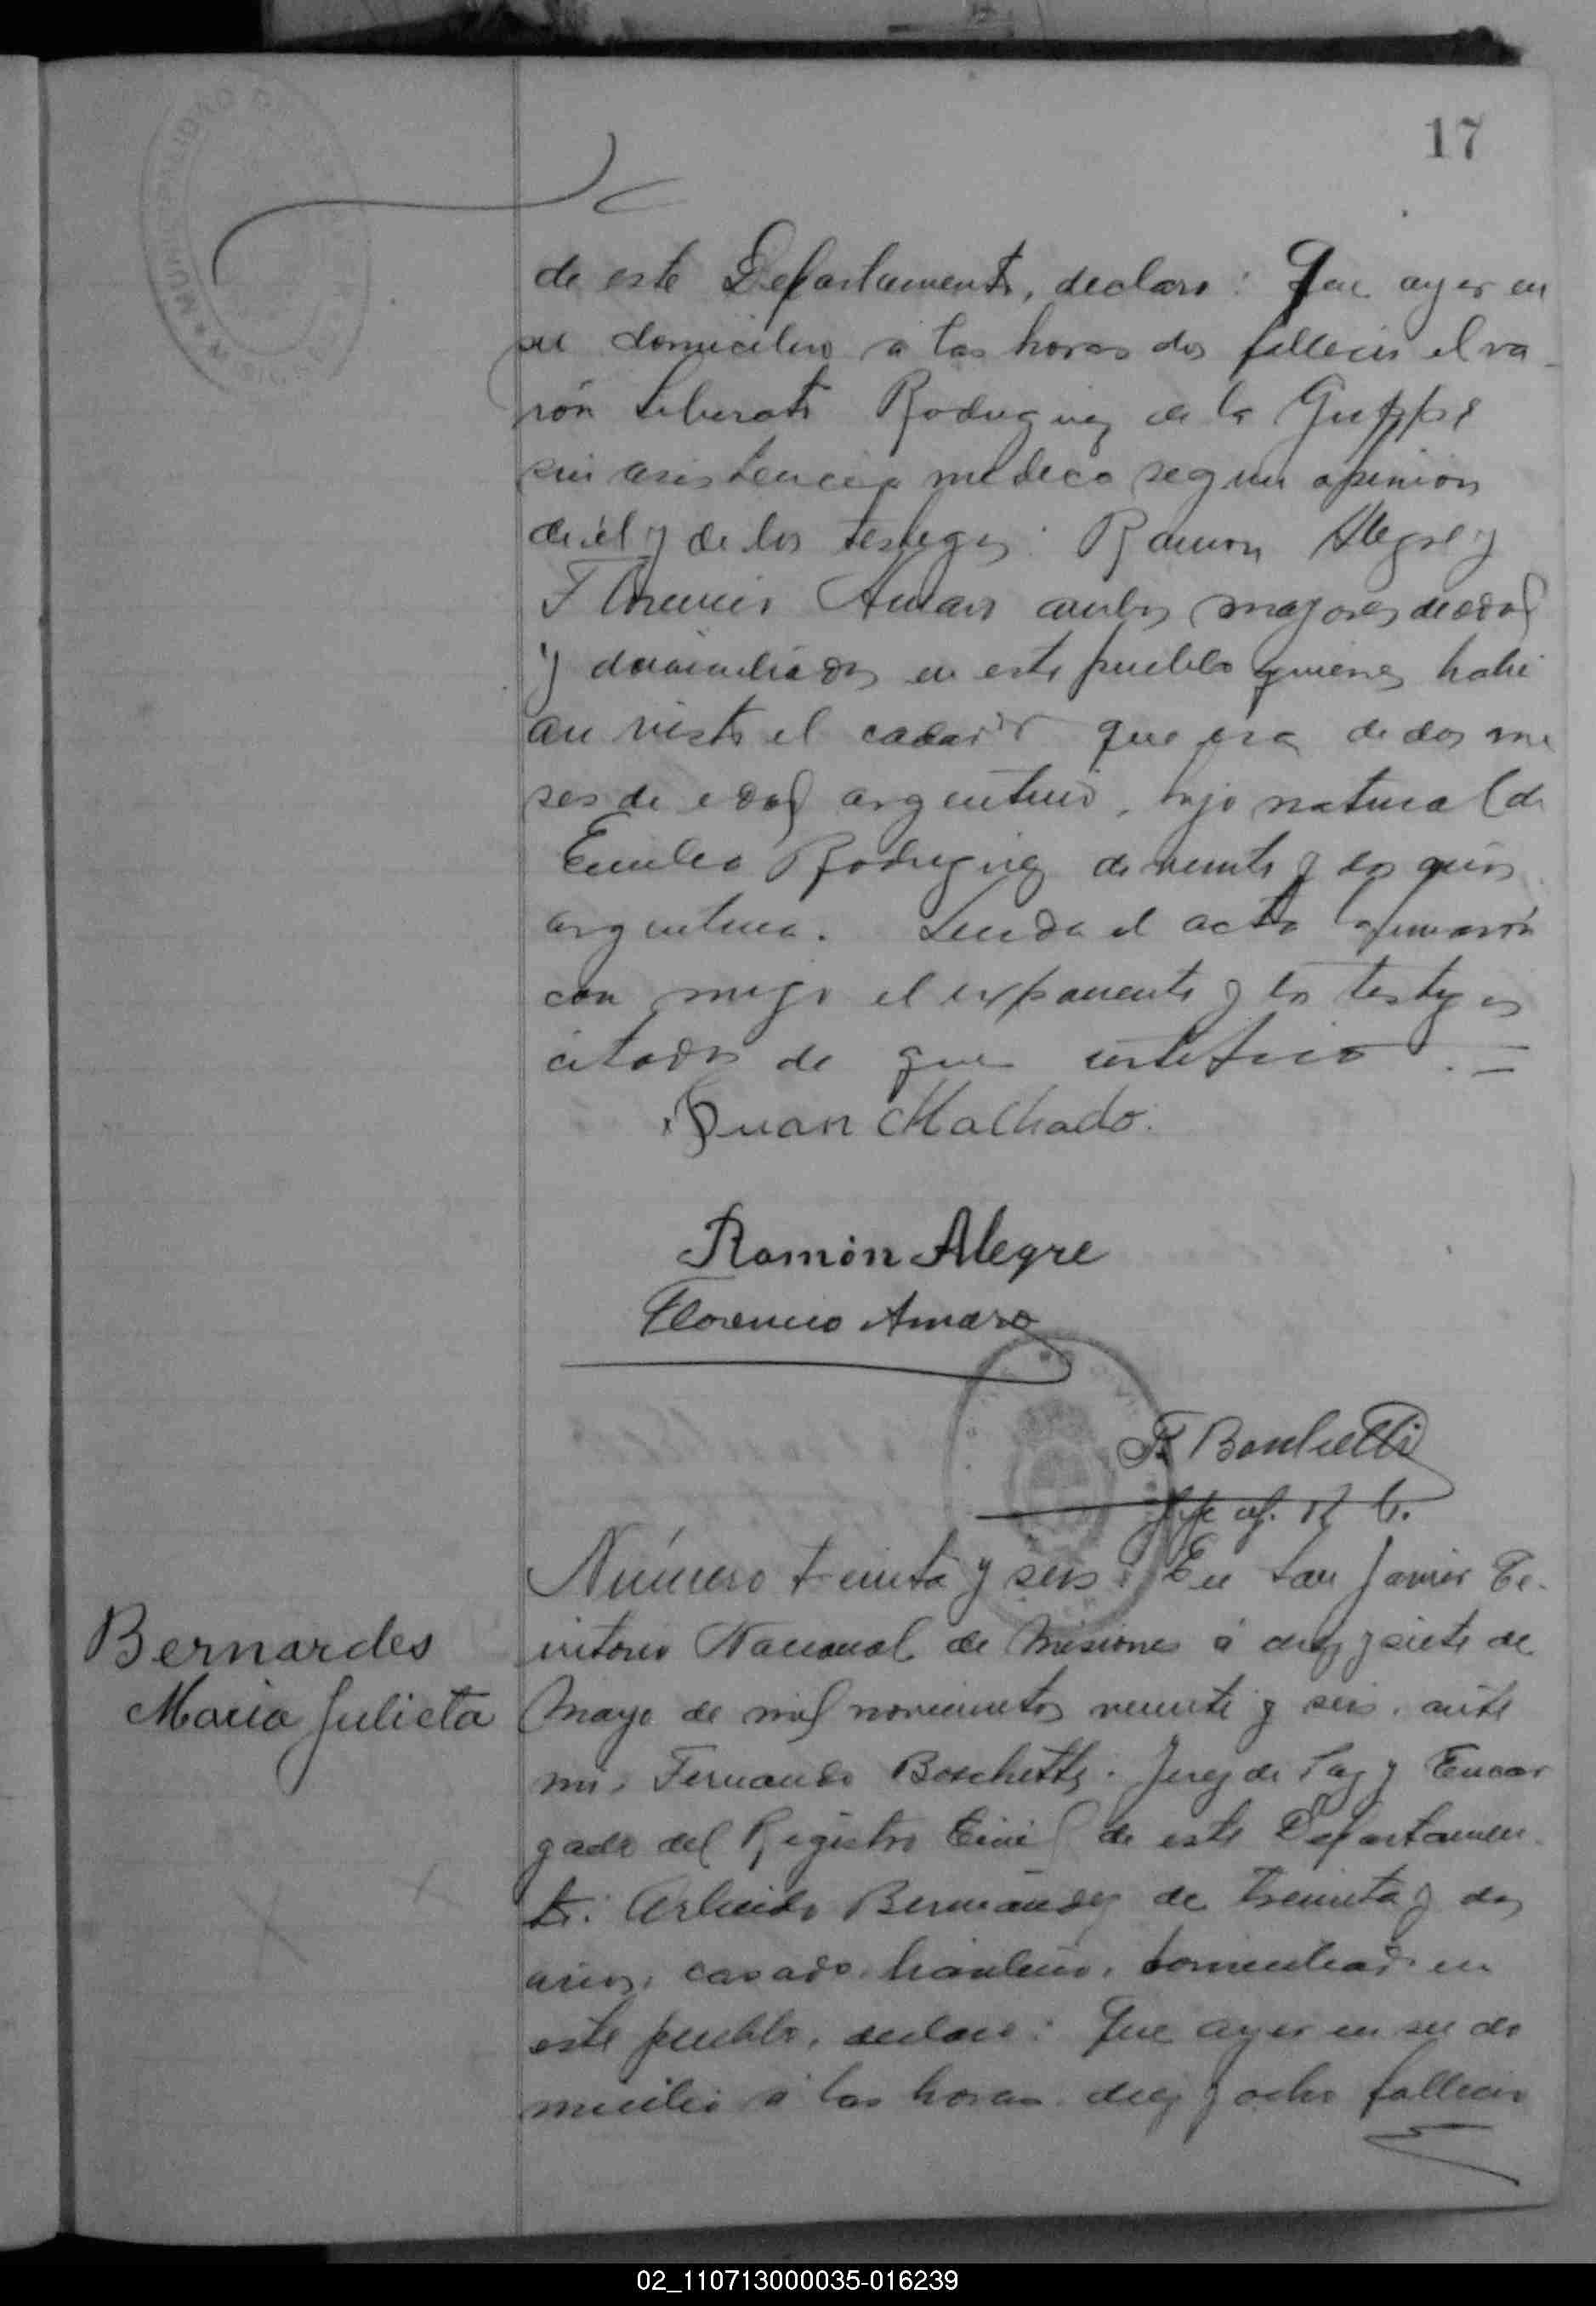 17
de este Departamento, declaro: Que ayer en
su domicilio a las horas dos fallecio el va-
rón Liberato Rodriguez de la Grippe
sin asistencia medica segun opinion
de él y de los testigos: Ramon Alegre y
Florencio Amaro ambos mayores de edad
y domiciliados en este pueblo quienes habi
an visto el cadaver que era de dos me
ses de edad argentino, hijo natural de
Emilia Rodriguez de veinte y dos años
argentina. Leida el acta la firmarón
con migo el exponente y los testigos
citados de que certifico. =
Juan Machado.
Ramón Alegre
Florencio Amaro
F. Boschetti
Jefe of. R. C.
Bernardes
Maria Julieta
Número treinta y seis: En San Javier Te-
rritorio Nacional de Misiones á diez y siete de
Mayo de mil novecientos veinte y seis, ante
mi, Fernando Boschetti, Juez de Paz y Encar
gado del Registro Civil de este Departamen-
to: Bernandez de treinta y dos
años, casado, domiciliado en
este pueblo, declaro: Que ayer en su do
micilio a las horas diez y ocho fallecio
02_110713000035-016239